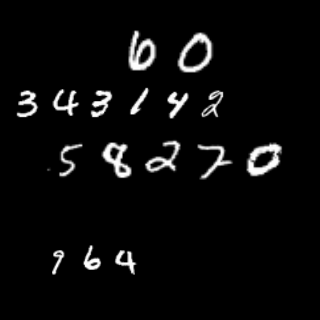 6 0
3 4 3 1 4 2
5 8 2 7 0
9 6 4